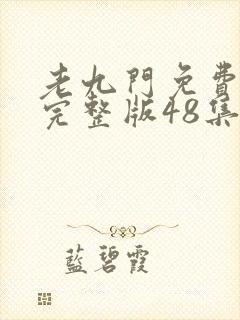 老九門免費
完整版48集
藍碧霞